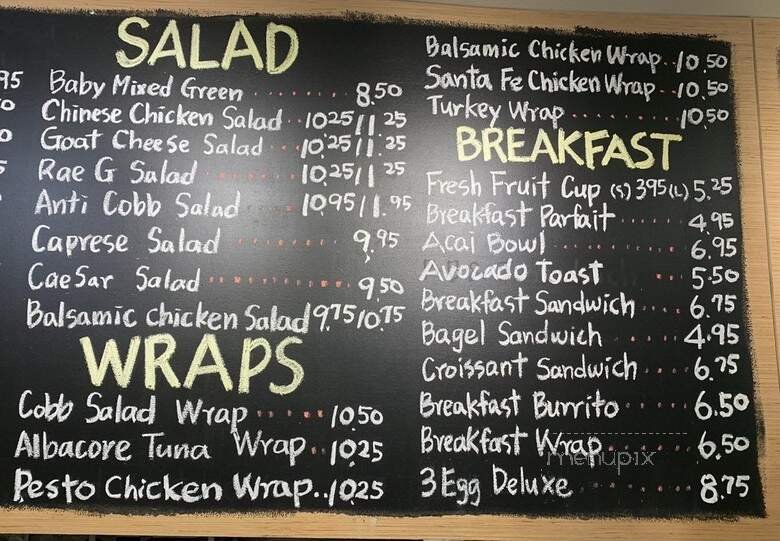 95
0
0
5
SALAD
Baby Mixed Green ........ 8.50
Chinese Chicken Salad .. 10.25/11.25
Goat Cheese Salad ... 10.25/11.25
Rae G Salad ........ 10.25/11.25
Anti Cobb Salad 10.95/11.95
Caprese Salad ........ 9.95
Caesar Salad ............ 9.50
Balsamic chicken Salad 9.75/10.75
WRAPS
Cobb Salad Wrap ..... 10.50
Albacore Tuna Wrap .. 10.25
Pesto Chicken Wrap.. 10.25
Balsamic Chicken Wrap.. 10.50
Santa Fe Chicken Wrap .. 10.50
Turkey Wrap ........ 10.50
BREAKFAST
Fresh Fruit Cup (S) 3.95 (L) 5.25
Breakfast Parfait ..... 4.95
Acai Bowl ......... 6.95
Avocado Toast ... 5.50
Breakfast Sandwich .... 6.75
Bagel Sandwich ...... 4.95
Croissant Sandwich .... 6.75
Breakfast Burrito ..... 6.50
Breakfast Wrap ...... 6.50
3 Egg Deluxe ........ 8.75
menupix